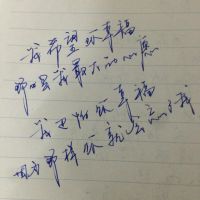 我希望你幸福
那是我最大的心愿
我也怕你幸福
因为那样你就会忘了我